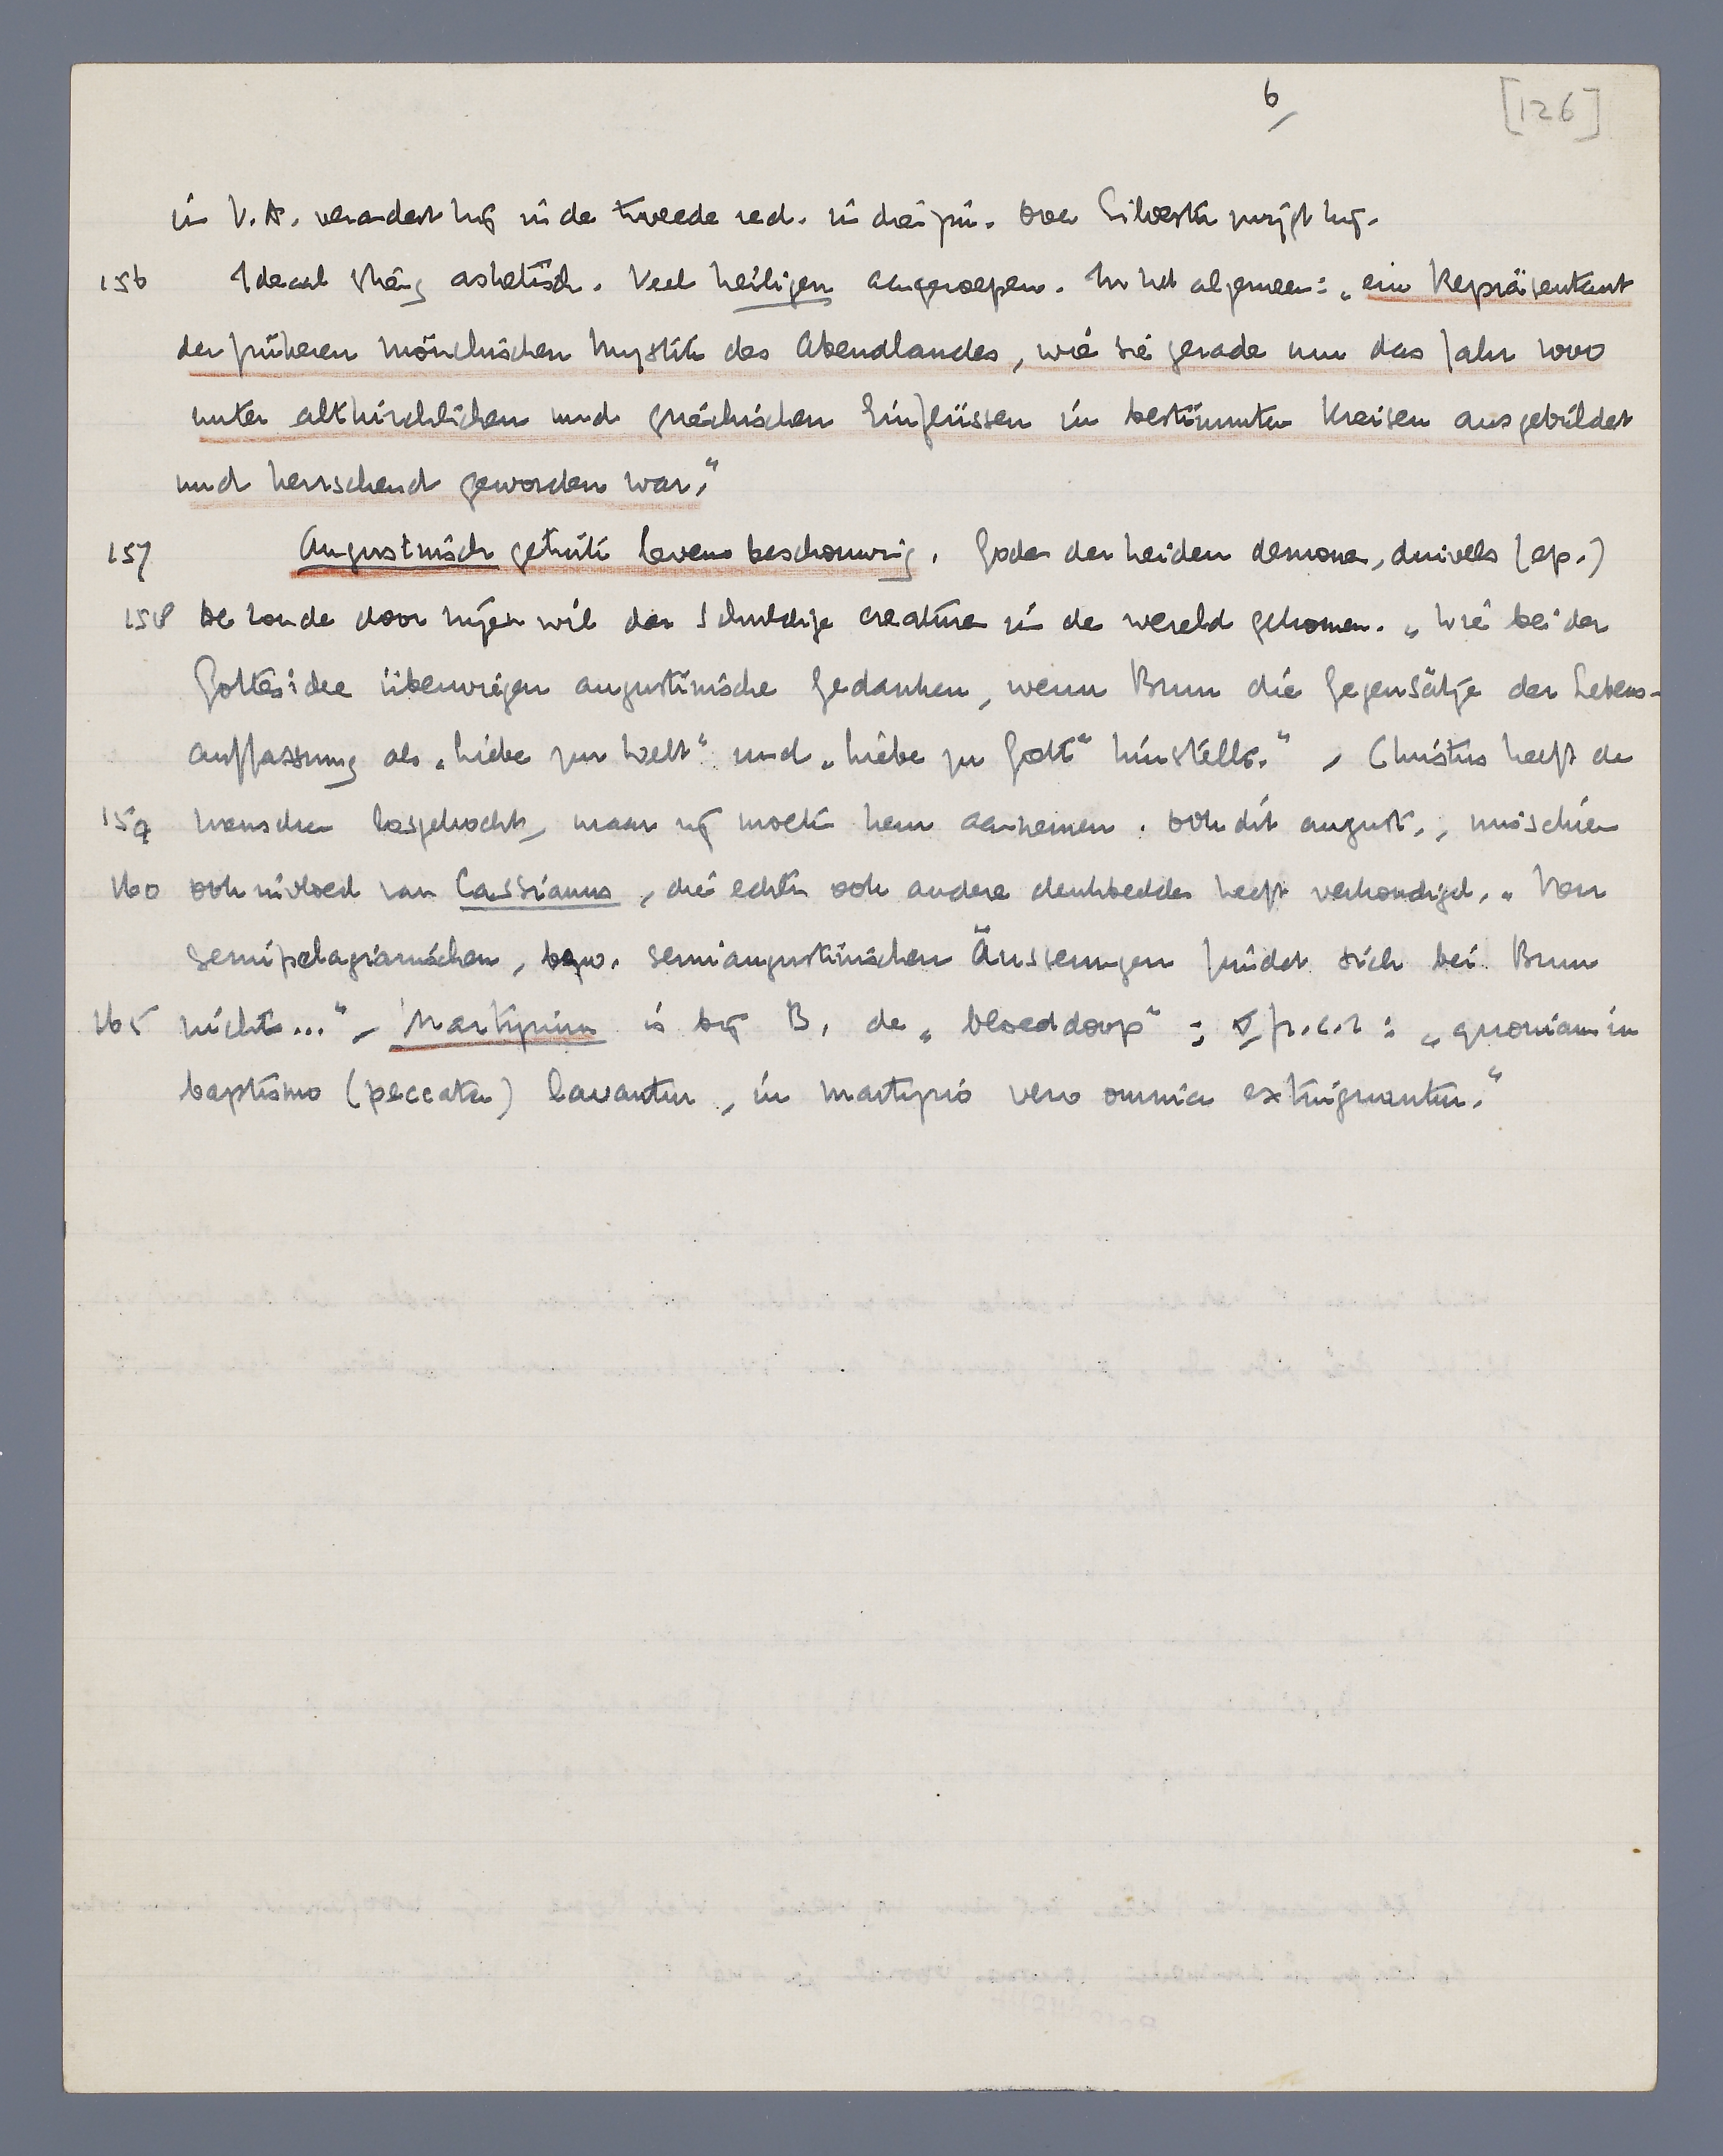 6
[126]
in V.A. verandert hij in de tweede red. in drie pin. Over Silvester zwijgt hij.
156 Ideaal streng asketisch. Veel heiligen aangeroepen. In het algemeen: „ein Repräsentant
der früheren mönchischen Mystik des Abendlandes, wie sie gerade um das Jahr 1000
unter altkirchlichen und griechischen Einflüssen in bestimmten Kreisen ausgebildet
und herrschend geworden war."
157 Augustinisch getinte levensbeschouwing. Goden der heiden demonen, duivels (ep.)
158 De zonde door vrijen wil der schuldige creaturen in de wereld gekomen. „Wie bei der
Gottesidee überwiegen augustinische Gedanken, wenn Brun die Gegensätze der Lebens-
auffassung als „Liebe zur Welt" und „Liebe zu Gott" hinstellt." – Christus heeft de
159 menschen losgekocht, maar wij moeten hem aannemen. Ook dit august., misschien
160 ook invloed van Cassianus, die echter ook andere denkbeelden heeft verkondigd. „Von
semipelagianischen, bezw. semiaugustinischen Äusserungen findet sich bei Brun
165 nichts..." – Martyrium is bij B. de „bloeddoop"; V fr. c. 2: „quoniam in
baptismo (peccata) lavantur, in martyrio vero omnia extinguuntur."